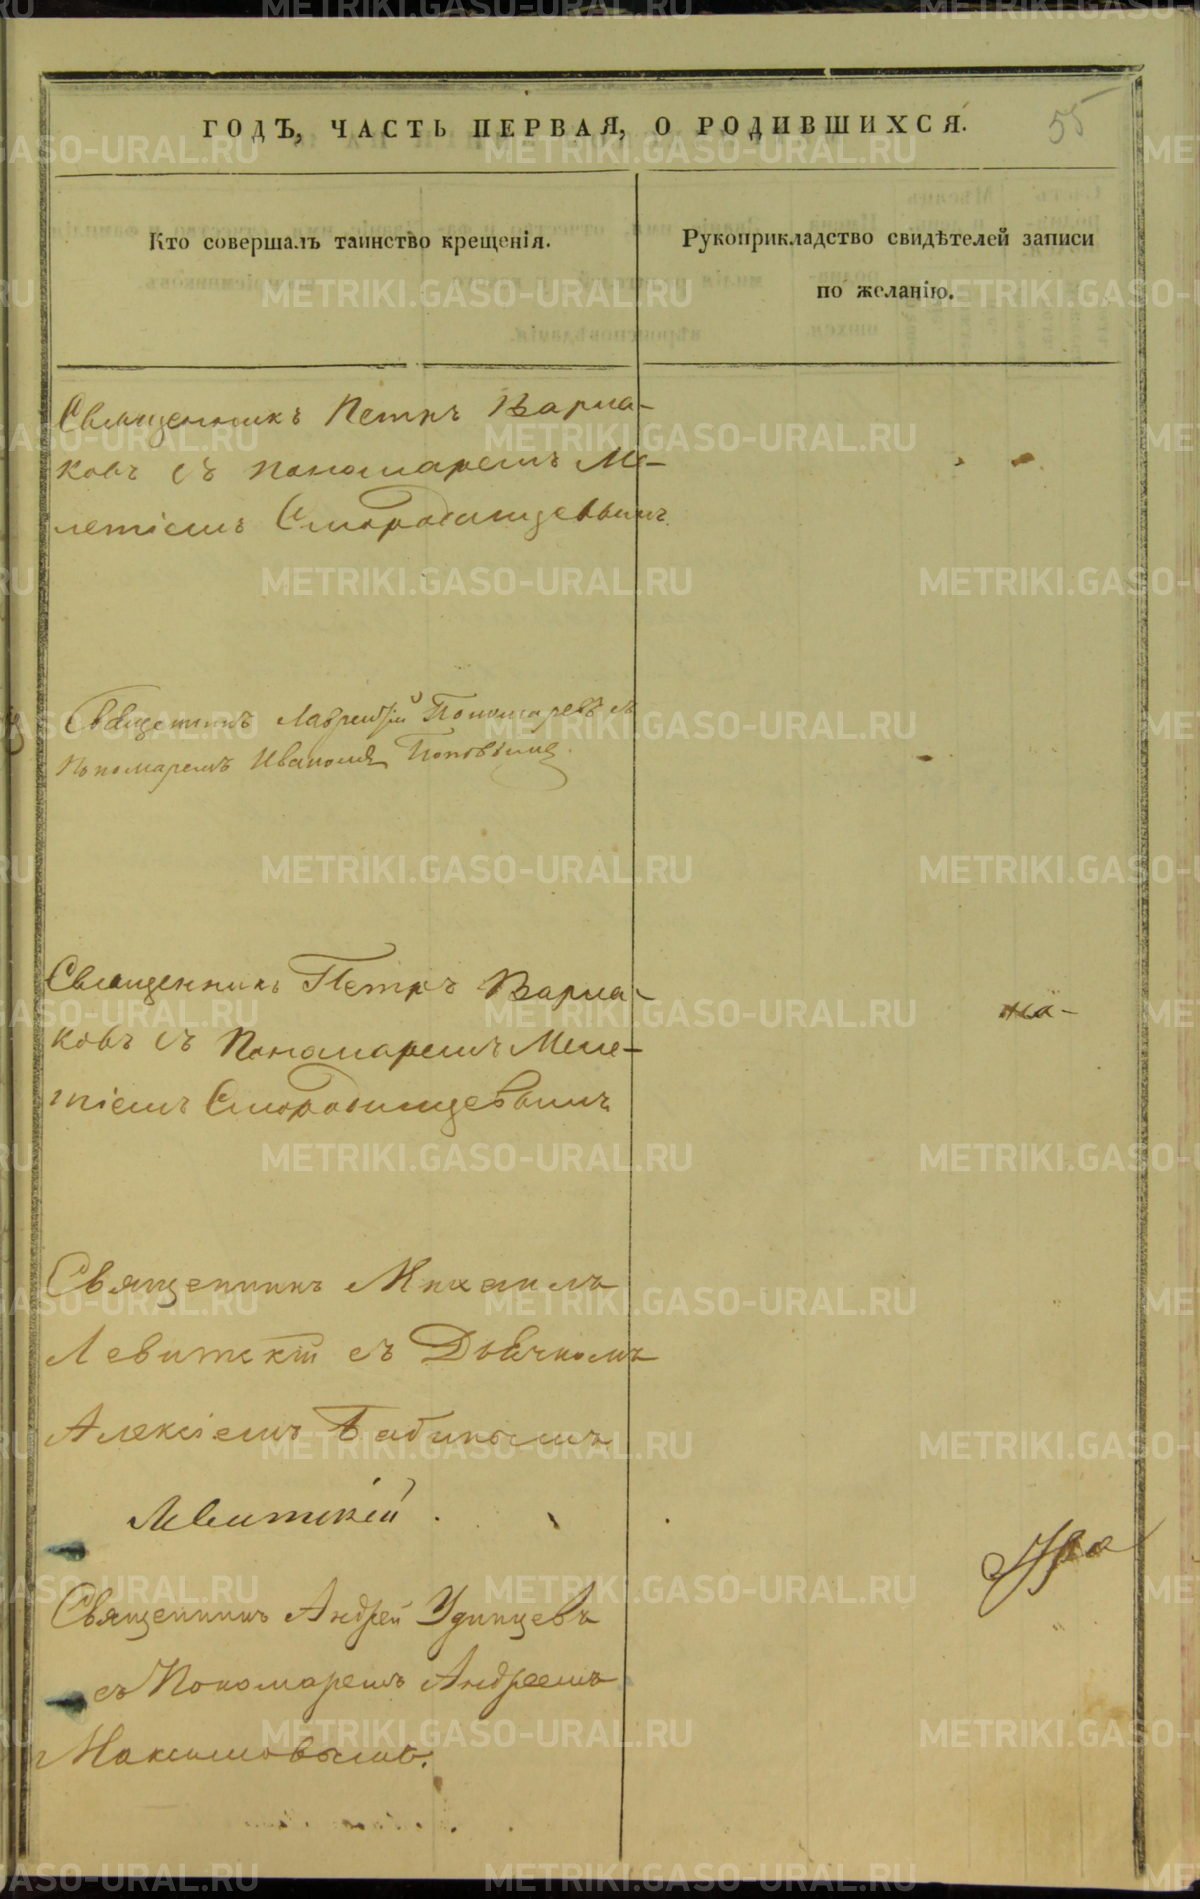 ГОДЪ, ЧАСТЬ ПЕРВАЯ, О РОДИВШИХСЯ.
55
Кто совершалъ таинство крещенія.
Рукоприкладство свидѣтелей записи
по желанію.
Священникъ Петръ Варла-
ковъ съ пономаремъ Ме-
летіемъ Смородинцевымъ
Священникъ Лаврентій Пономаревъ съ
Пономаремъ Иваномъ Поповымъ.
Священникъ Петръ Варла-
ковъ съ Пономаремъ Меле-
тіемъ Смородинцевымъ
на-
Священникъ Михаилъ
Левитскій съ Дьячкомъ
Алексіемъ Бабинымъ
Левитскій.
Священникъ Андрей Удинцевъ
съ Пономаремъ Андреемъ
Максимовымъ.
METRIKI.GASO-URAL.RU